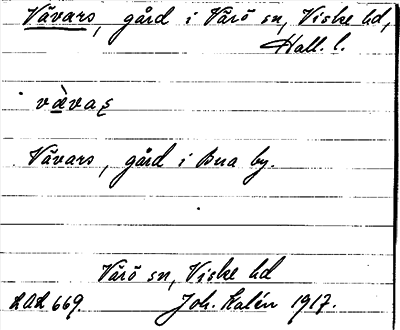 Vävars, gård i Värö sn, Viske hd,
Hall. l.
vävas
Vävars, gård i Bua by.
Värö sn, Viske hd
DAL 669. Joh. Kalén 1917.